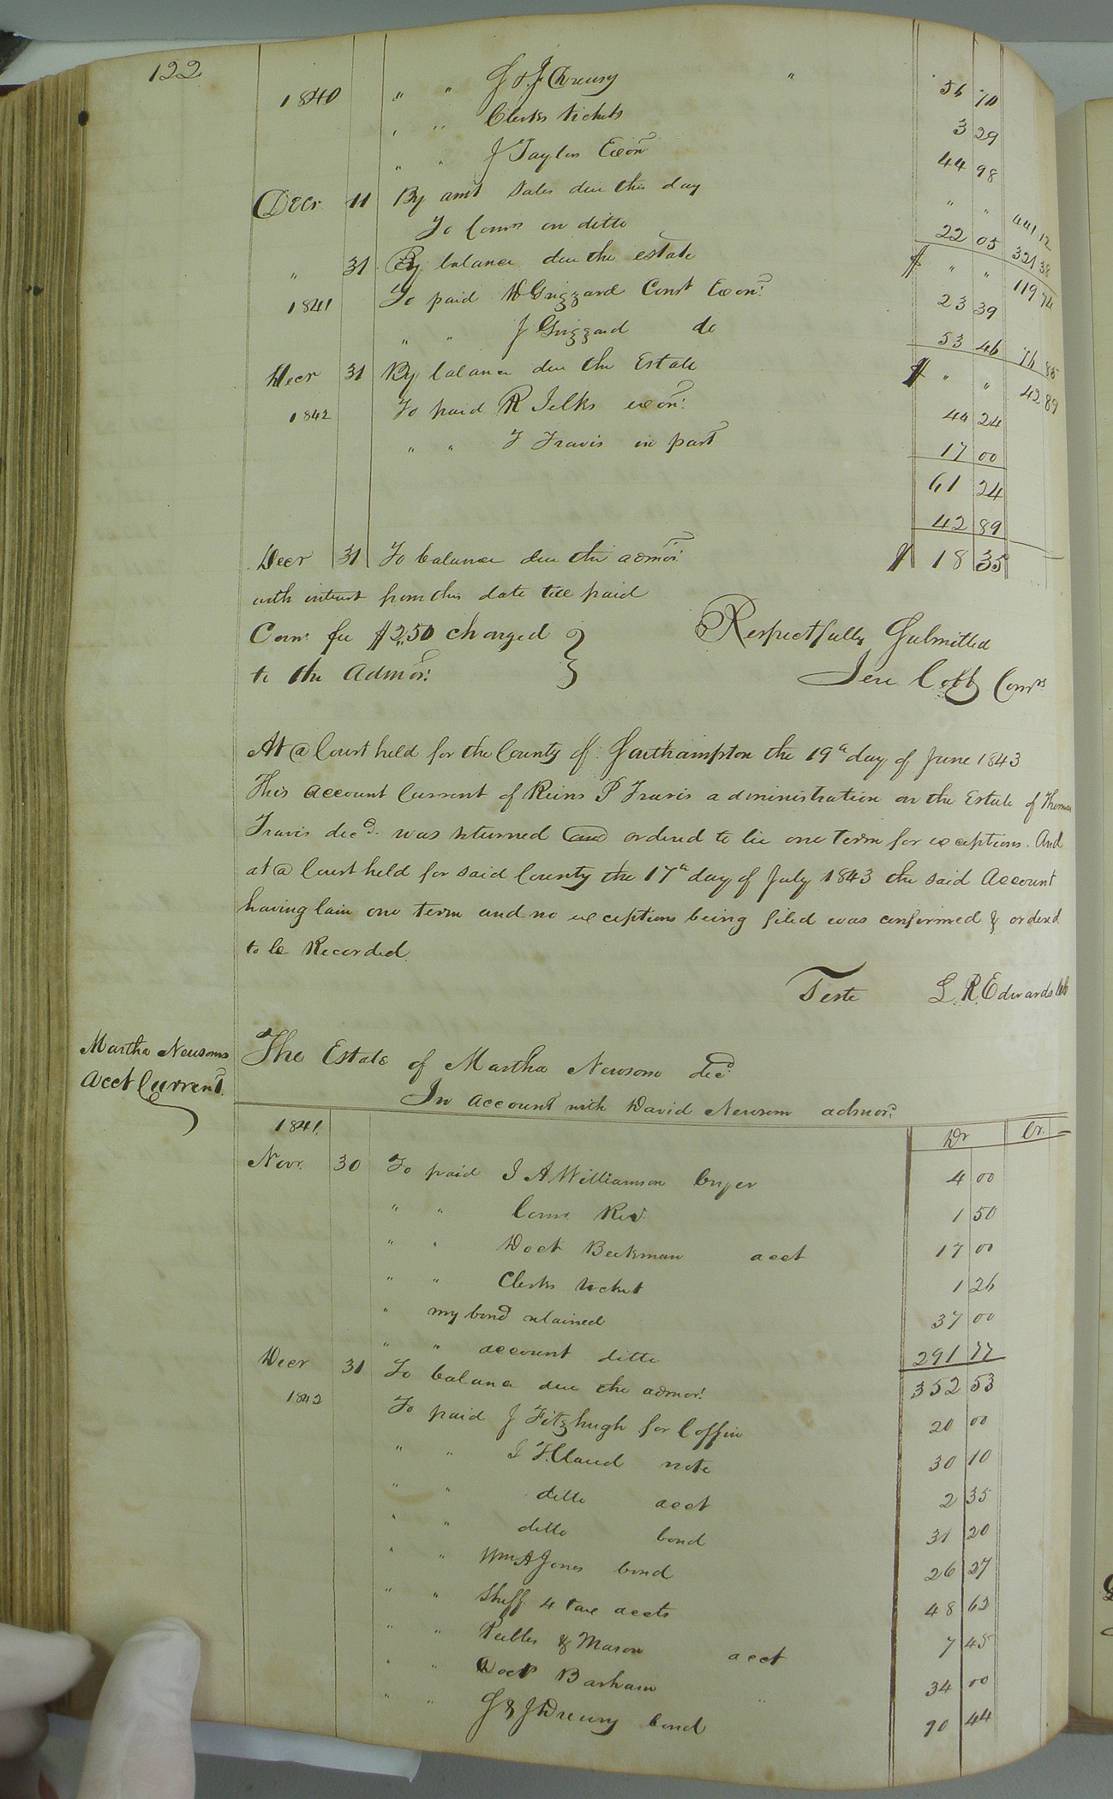 122
1840 " " J & J Drewry " 56 70
" " Clerks tickets 3 29
" " J Taylor Exon. 44 98
Decr 11 By amt Sales due this day " " 441 12
To Comrs on ditto 22 05 321 38
" 31 By balance due the estate $ " " 119 74
1841 To paid W Grizzard Const Exon. 23 39
" " J Grizzard do 53 46 76 85
Decr 31 By balance due the Estate $ " " 42 89
1842 To paid R Jelks exon. 44 24
" " T Travis in part 17 00
61 24
42 89
Decr 31 To balance due the admor. $ 18 35
with interest from this date till paid
Comr. fee $2.50 charged
to the Admor.
Respectfully Submitted
Jere Cobb Comrs
At a Court held for the County of Southampton the 19th day of June 1843
This Account Current of Reins P Travis administration on the Estate of Thomas
Travis decd. was returned and ordered to lie one term for exceptions. And
at a Court held for said County the 17th day of July 1843 the said Account
having lain one term and no exceptions being filed was confirmed & ordered
to be Recorded.
Teste L. R. Edwards Clk
Martha Newsoms
Acct Current.
The Estate of Martha Newsom decd.
In account with David Newsom admor.
1841. Dr Cr.
Novr. 30 To paid J A Williamson Cryer 4 00
" " Comr Rev. 1 50
" " Doct Beckman acct 17 00
" " Clerks ticket 1 26
" my bond retained 37 00
" " account ditto 291 77
Decr 31 To balance due the admor. 352 53
1842 To paid J Fitzhugh for Coffin 20 00
" " J F. Claud note 30 10
" " ditto acct 2 35
" " ditto bond 31 20
" " Wm A Jones bond 26 27
" " Sheff 4 tax accts 48 62
" " Peebles & Mason acct 7 45
" " Doct Barham " 34 00
" " J & J Drewry bond 70 44